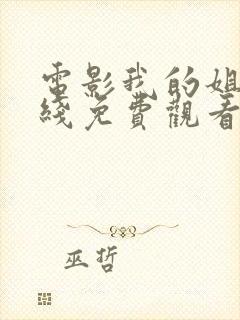 電影我的姐
綫免費觀看
巫哲